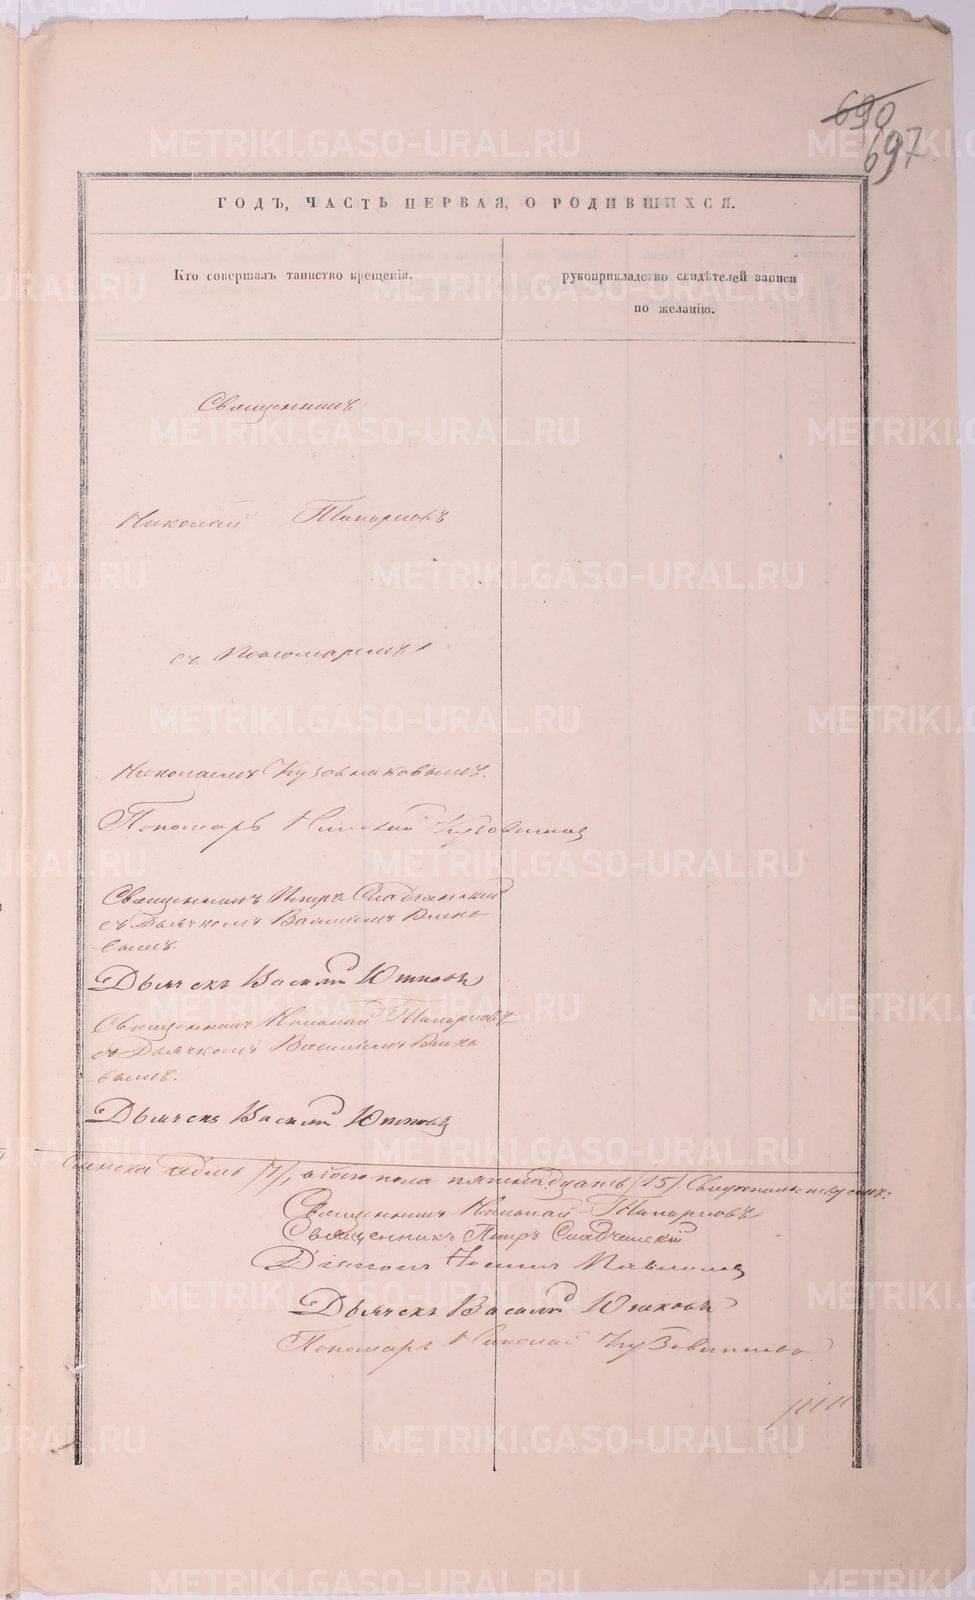 690
697
ГОДЪ, ЧАСТЬ ПЕРВАЯ, О РОДИВШИХСЯ.
Кто совершалъ таинство крещенія.
рукоприкладство свидѣтелей записи
по желанію.
Священникъ
Николай Топорковъ
съ Пономаремъ
Николаемъ Кузовниковымъ.
Пономарь Николай Кузовников
Священникъ Петръ Сладчанскій
съ Дьячкомъ Василіемъ Юшко-
вымъ.
Дьячекъ Василій Юшковъ
Священникъ Николай Топорковъ
съ Дьячкомъ Василіемъ Юшко-
вымъ.
Дьячекъ Василій Юшковъ
женска седмь /7/, обоего пола пятнадцать /15/.
Священникъ Николай Топорковъ
Священникъ Петръ Сладчанскій
Діаконъ
Дьячекъ Василій Юшковъ
Пономарь Николай Кузовников
METRIKI.GASO-URAL.RU